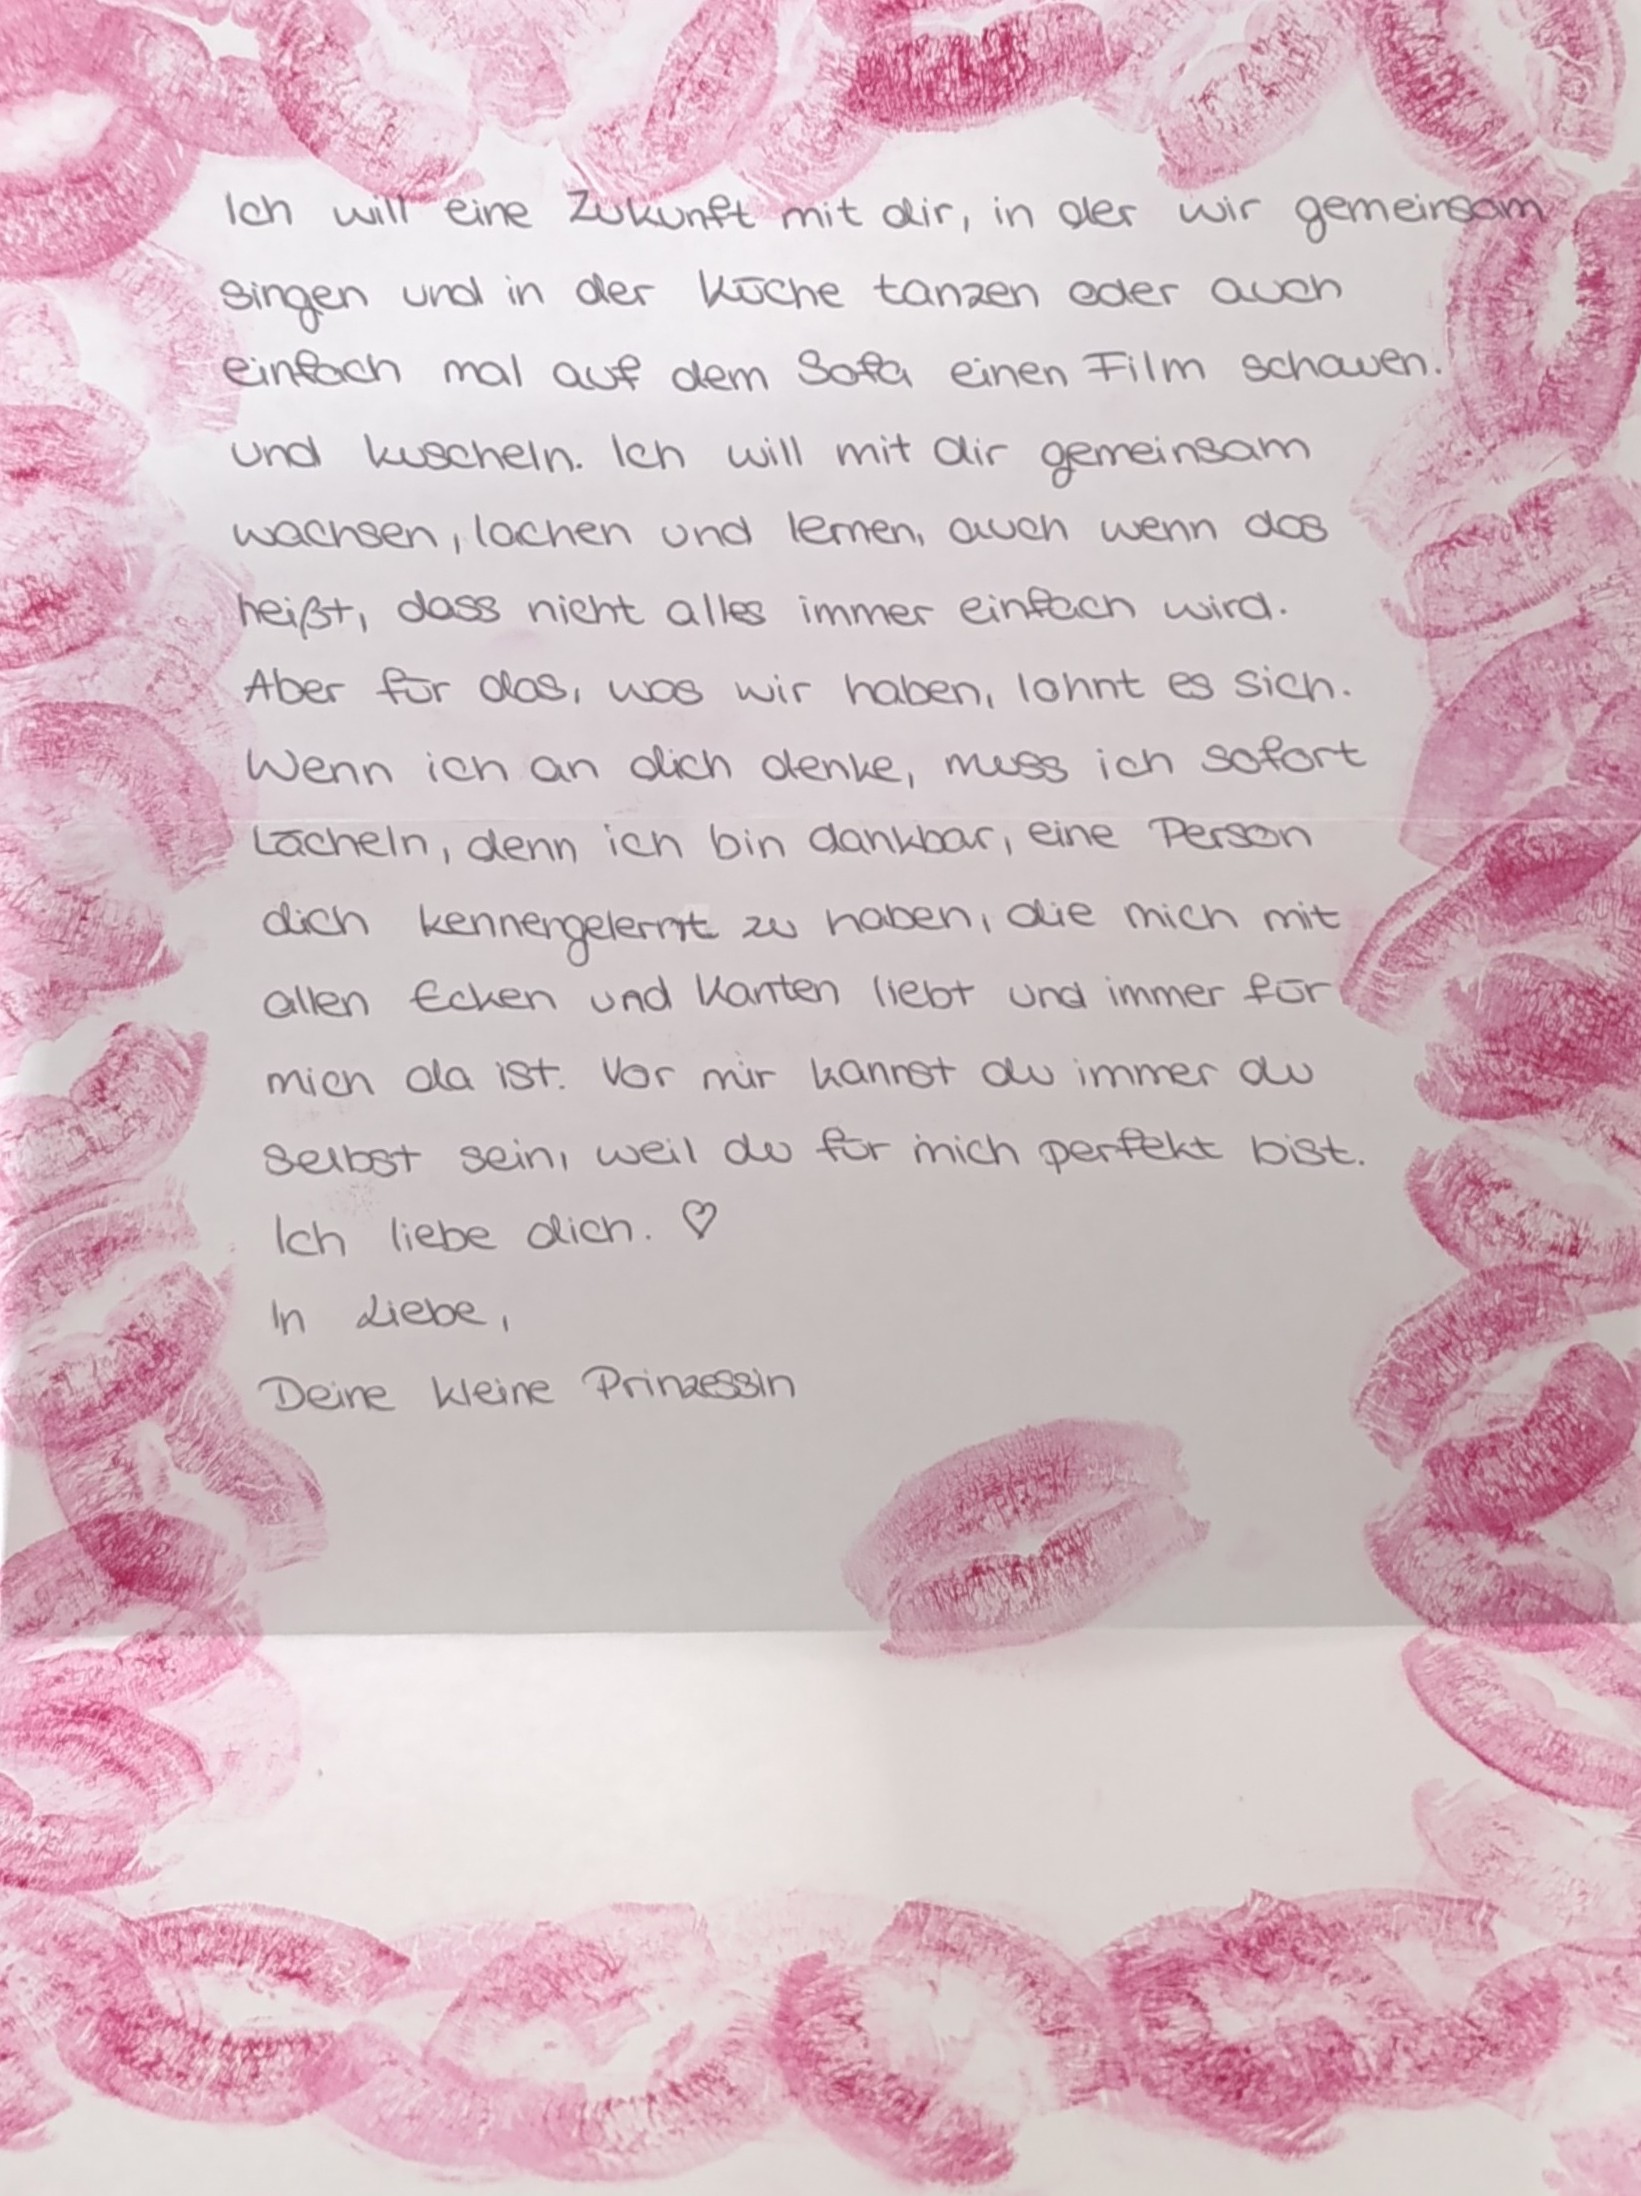 Ich will eine Zukunft mit dir, in der wir gemeinsam
singen und in der Küche tanzen oder auch
einfach mal auf dem Sofa einen Film schauen.
und kuscheln. Ich will mit dir gemeinsam
wachsen, lachen und lernen, auch wenn das
heißt, dass nicht alles immer einfach wird.
Aber für das, was wir haben, lohnt es sich.
Wenn ich an dich denke, muss ich sofort
Lächeln, denn ich bin dankbar, eine Person
dich kennengelernt zu haben, die mich mit
allen Ecken und Kanten liebt und immer für
mich da ist. Vor mir kannst du immer du
selbst sein, weil du für mich perfekt bist.
Ich liebe dich. ♡
In Liebe,
Deine kleine Prinzessin